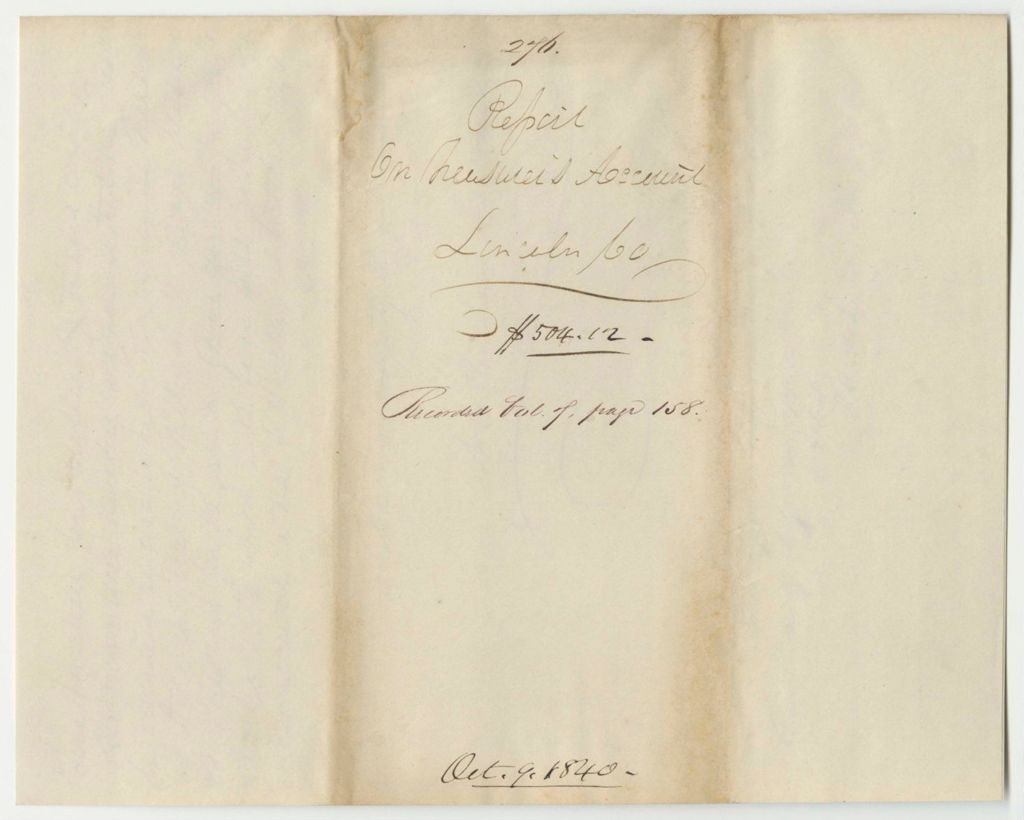 276.
Report
On Treasurer's Account
Lincoln Co
$504.12
Recorded Vol. 7, page 158.
Oct. 9. 1840